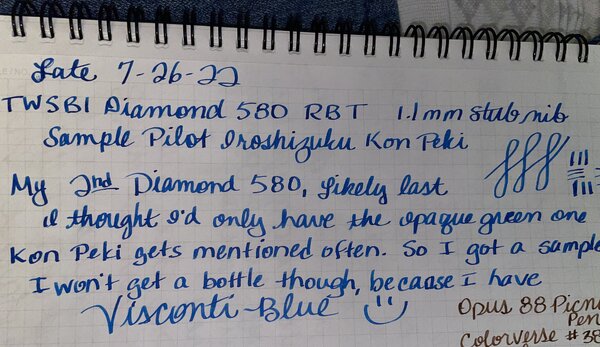 Late 7-26-22
TWSBI Diamond 580 RBT 1.1mm stub nib
Sample Pilot Iroshizuku Kon Peki
My 2nd Diamond 580, likely last
I thought I'd only have the opaque green one
Kon Peki gets mentioned often. So I got a sample
I won't get a bottle though, becaase I have
Visconti-Blue
Opus 88 Picni
Pen
Colorverse #38